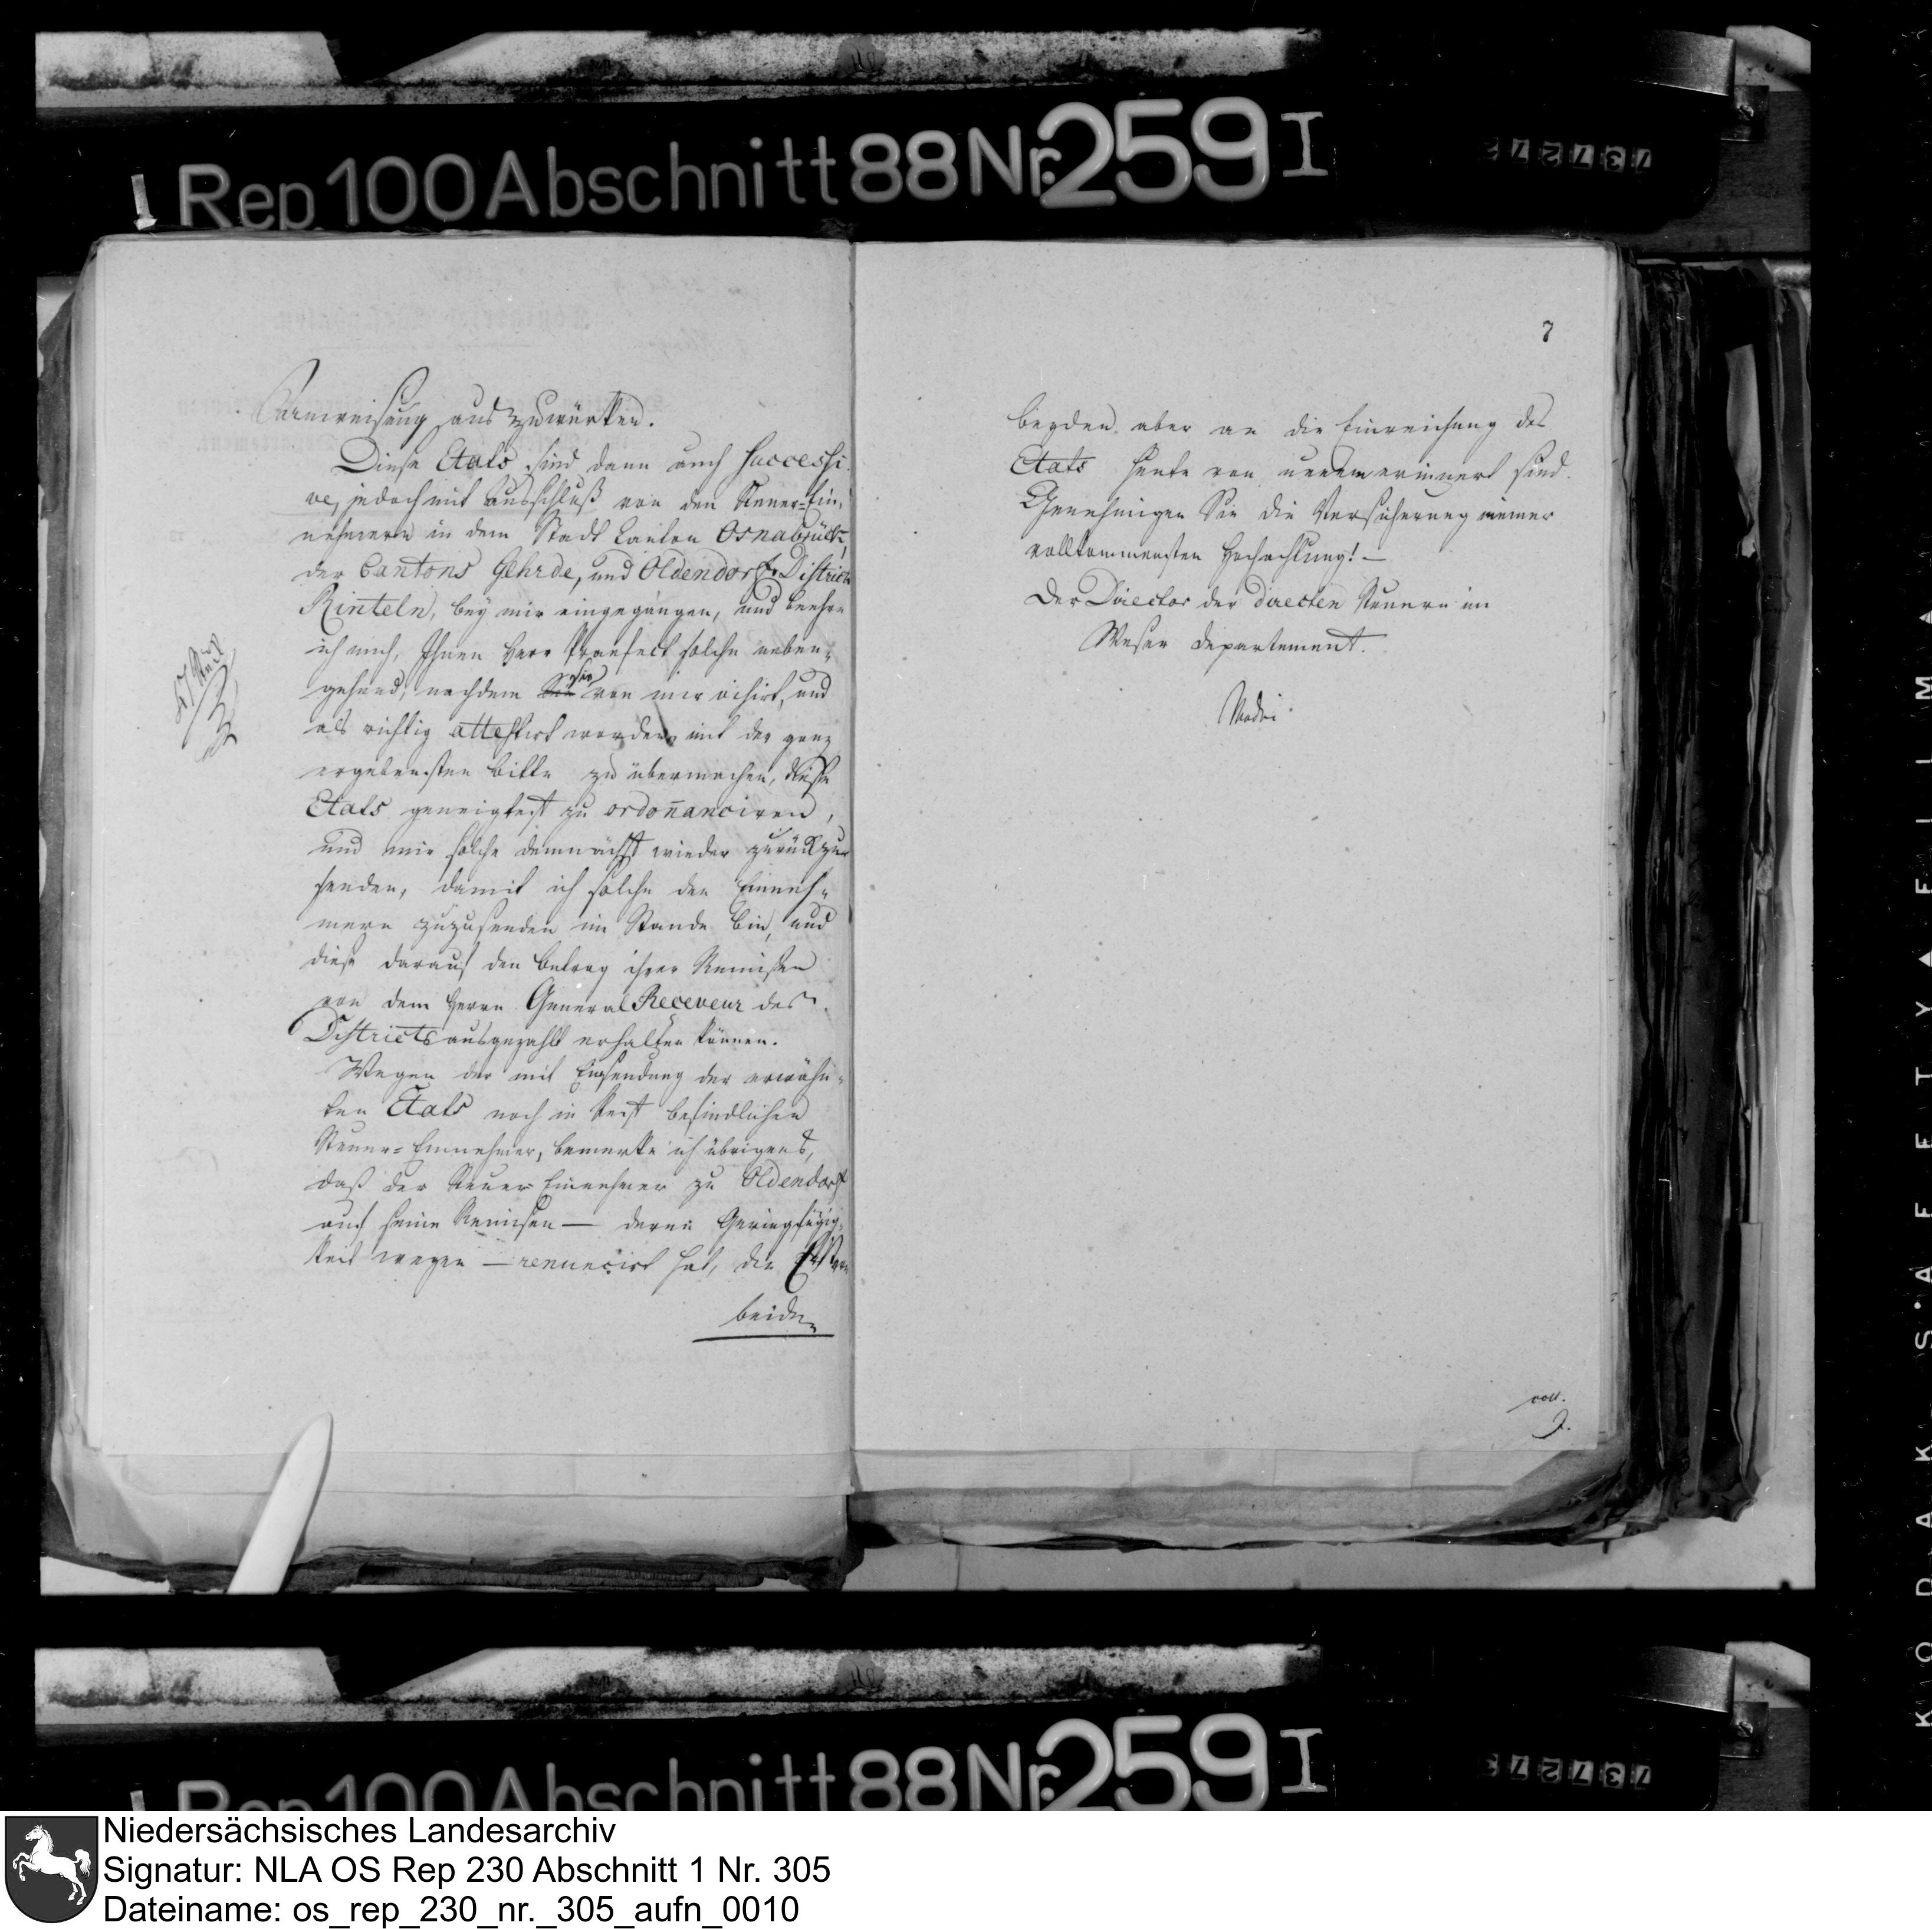 Rep. 100 Abschnitt 88 Nr. 259 I
Anweisung auszuwürken.
Diese Etats sind dann auch successi
ve, jedoch mit Ausschluß von den Steuer-Ein-
nehmern in dem Stadt Canton Osnabrück,
der Cantons Gehrde, und Oldendorf Districts
Rinteln, bey mir eingegangen, und beehre
ich mich, Ihnen Herr Praefect solche neben-
gehend, nachdem sie von mir visirt, und
als richtig attestirt worden, mit der ganz
ergebensten Bitte zu übermachen, diese
Etats geneigtest zu ordon̄anciren,
und mir solche demnächst wieder zurückzu
senden, damit ich solche den Einneh-
mern zuzusenden im Stande bin, und
diese darauf den Betrag ihrer Remisen
von dem Herrn General Receveur des
Districts ausgezahlt erhalten können.
Wegen der mit Einsendung der erwähn-
ten Etats noch in Rest befindlichen
Steuer-Einnehmer, bemerke ich übrigens,
daß der Steuer Einnehmer zu Oldendorf
auf seine Remisen — deren Geringfügig-
keit wegen — renuncirt hat, die Erstern
beiden
47 Stück
7
beyden aber an die Einreichung des
Etats heute von neuem erinnert sind.
Genehmigen Sie die Versicherung meiner
vollkommensten Hochachtung! —
Der Director der directen Steuern im
Weser Departement.
coll.
KODAK SAFETY FILM
Rep. 100 Abschnitt 88 Nr. 259 I
Niedersächsisches Landesarchiv
Signatur: NLA OS Rep 230 Abschnitt 1 Nr. 305
Dateiname: os_rep_230_nr._305_aufn_0010